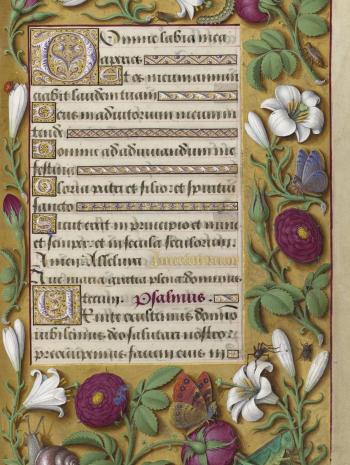 Domine labia mea
aperies
Et os meum annun
ciabit laudem tuam
Deus in adiutorium meum in
tende
Domine ad adiuvandum me
festina
Gloria patri et filio et spiritui
sancto
Sicut erat in principio et nunc
et semper et in secula seculorum.
Amen. Alleluia. Invitatorium
Ave maria gratia plena dominus
tecum. Psalmus.
Venite exultemus domino
iubilemus deo salutari nostro:
preoccupemus faciem eius in